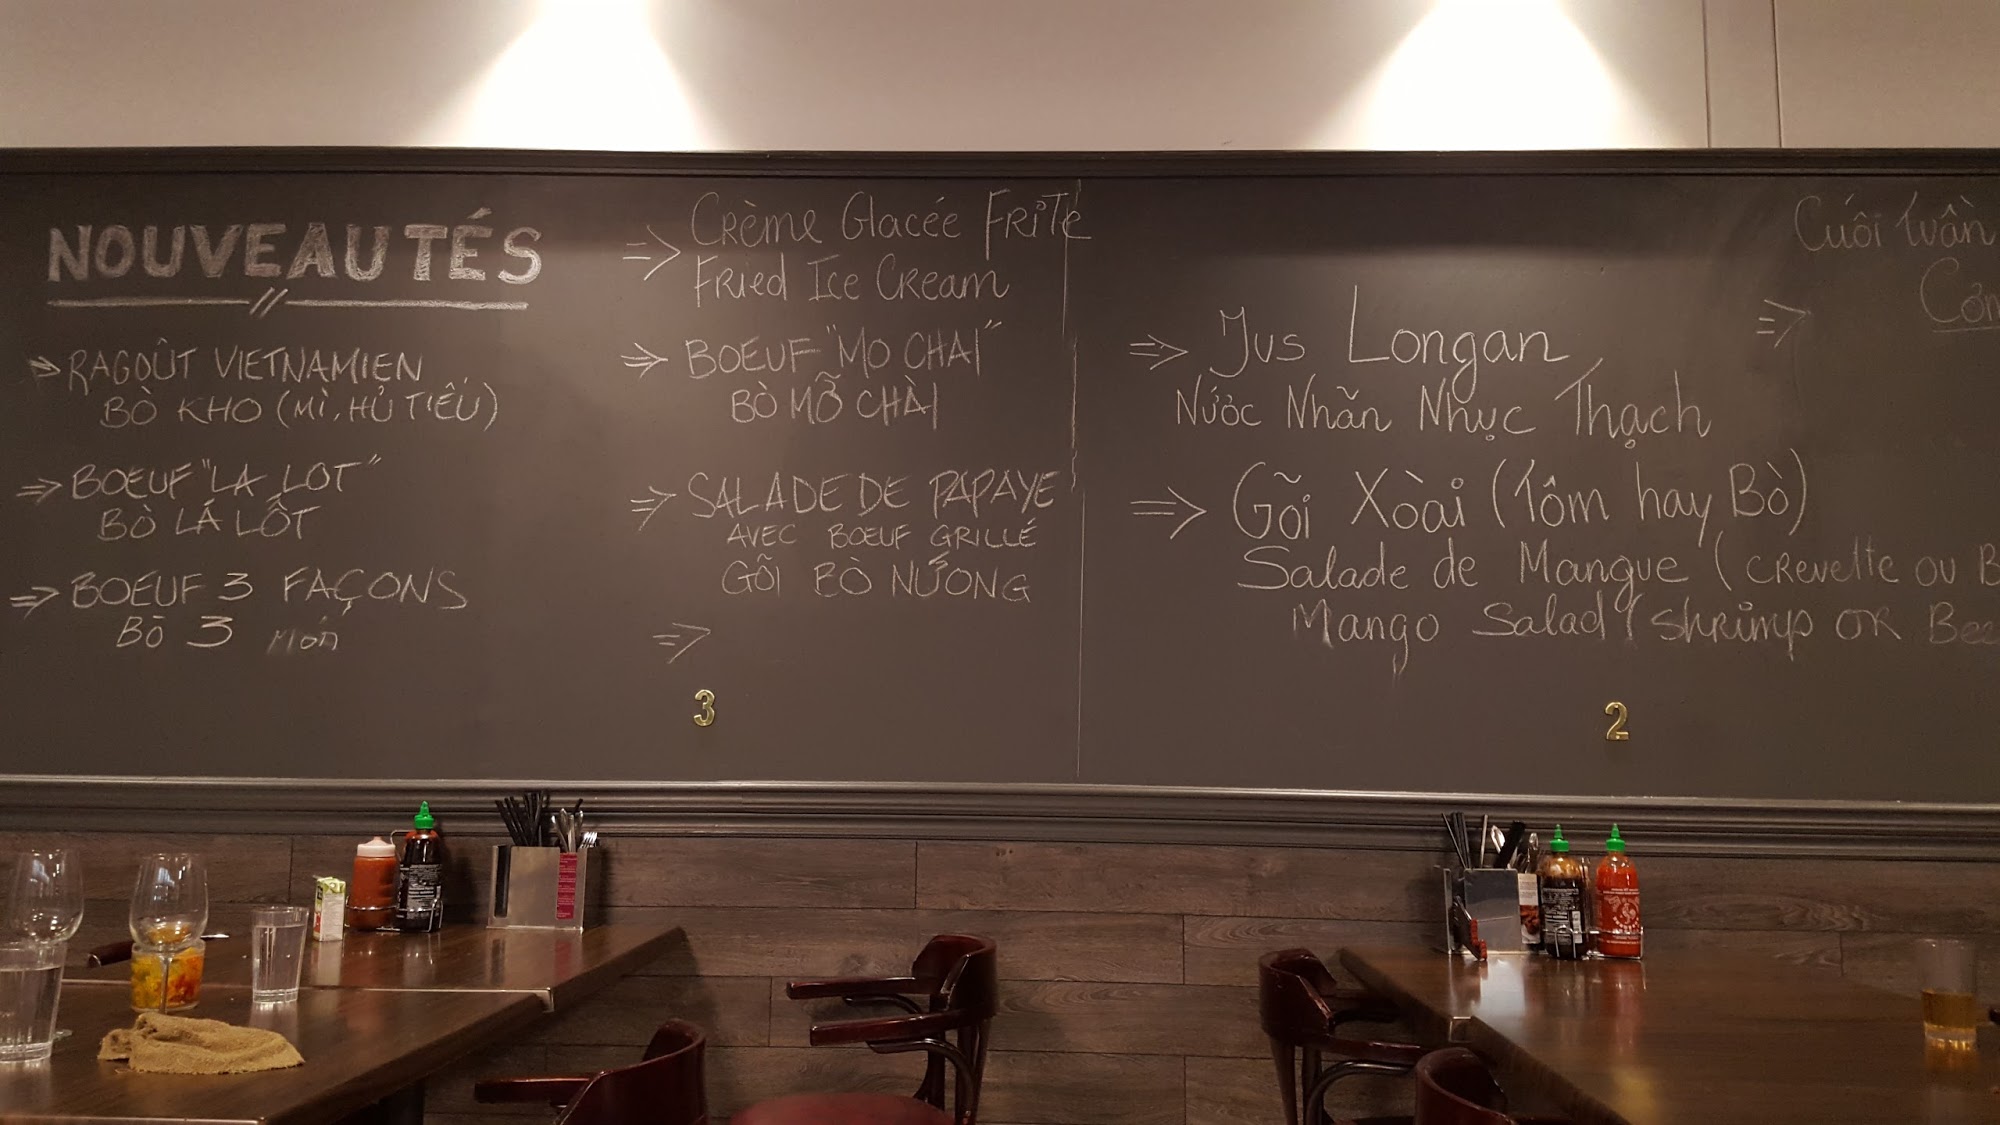 NOUVEAUTÉS
⇒ RAGOÛT VIETNAMIEN
BÒ KHO (MÌ, HỦ TIẾU)
⇒ BOEUF "LA LOT"
BÒ LÁ LỐT
⇒ BOEUF 3 FAÇONS
BÒ 3 MÓN
⇒ Crème Glacée FRITE
Fried Ice Cream
⇒ BOEUF "MO CHAI"
BÒ MỠ CHÀI
⇒ SALADE DE PAPAYE
AVEC BOEUF GRILLÉ
GỎI BÒ NƯỚNG
⇒
3
⇒ Jus Longan
Nước Nhãn Nhục Thạch
⇒ Gõi Xòai (Tôm hay Bò)
Salade de Mangue (crevette ou B
Mango Salad (shrimp OR Bee
2
Cuối Tuần
⇒